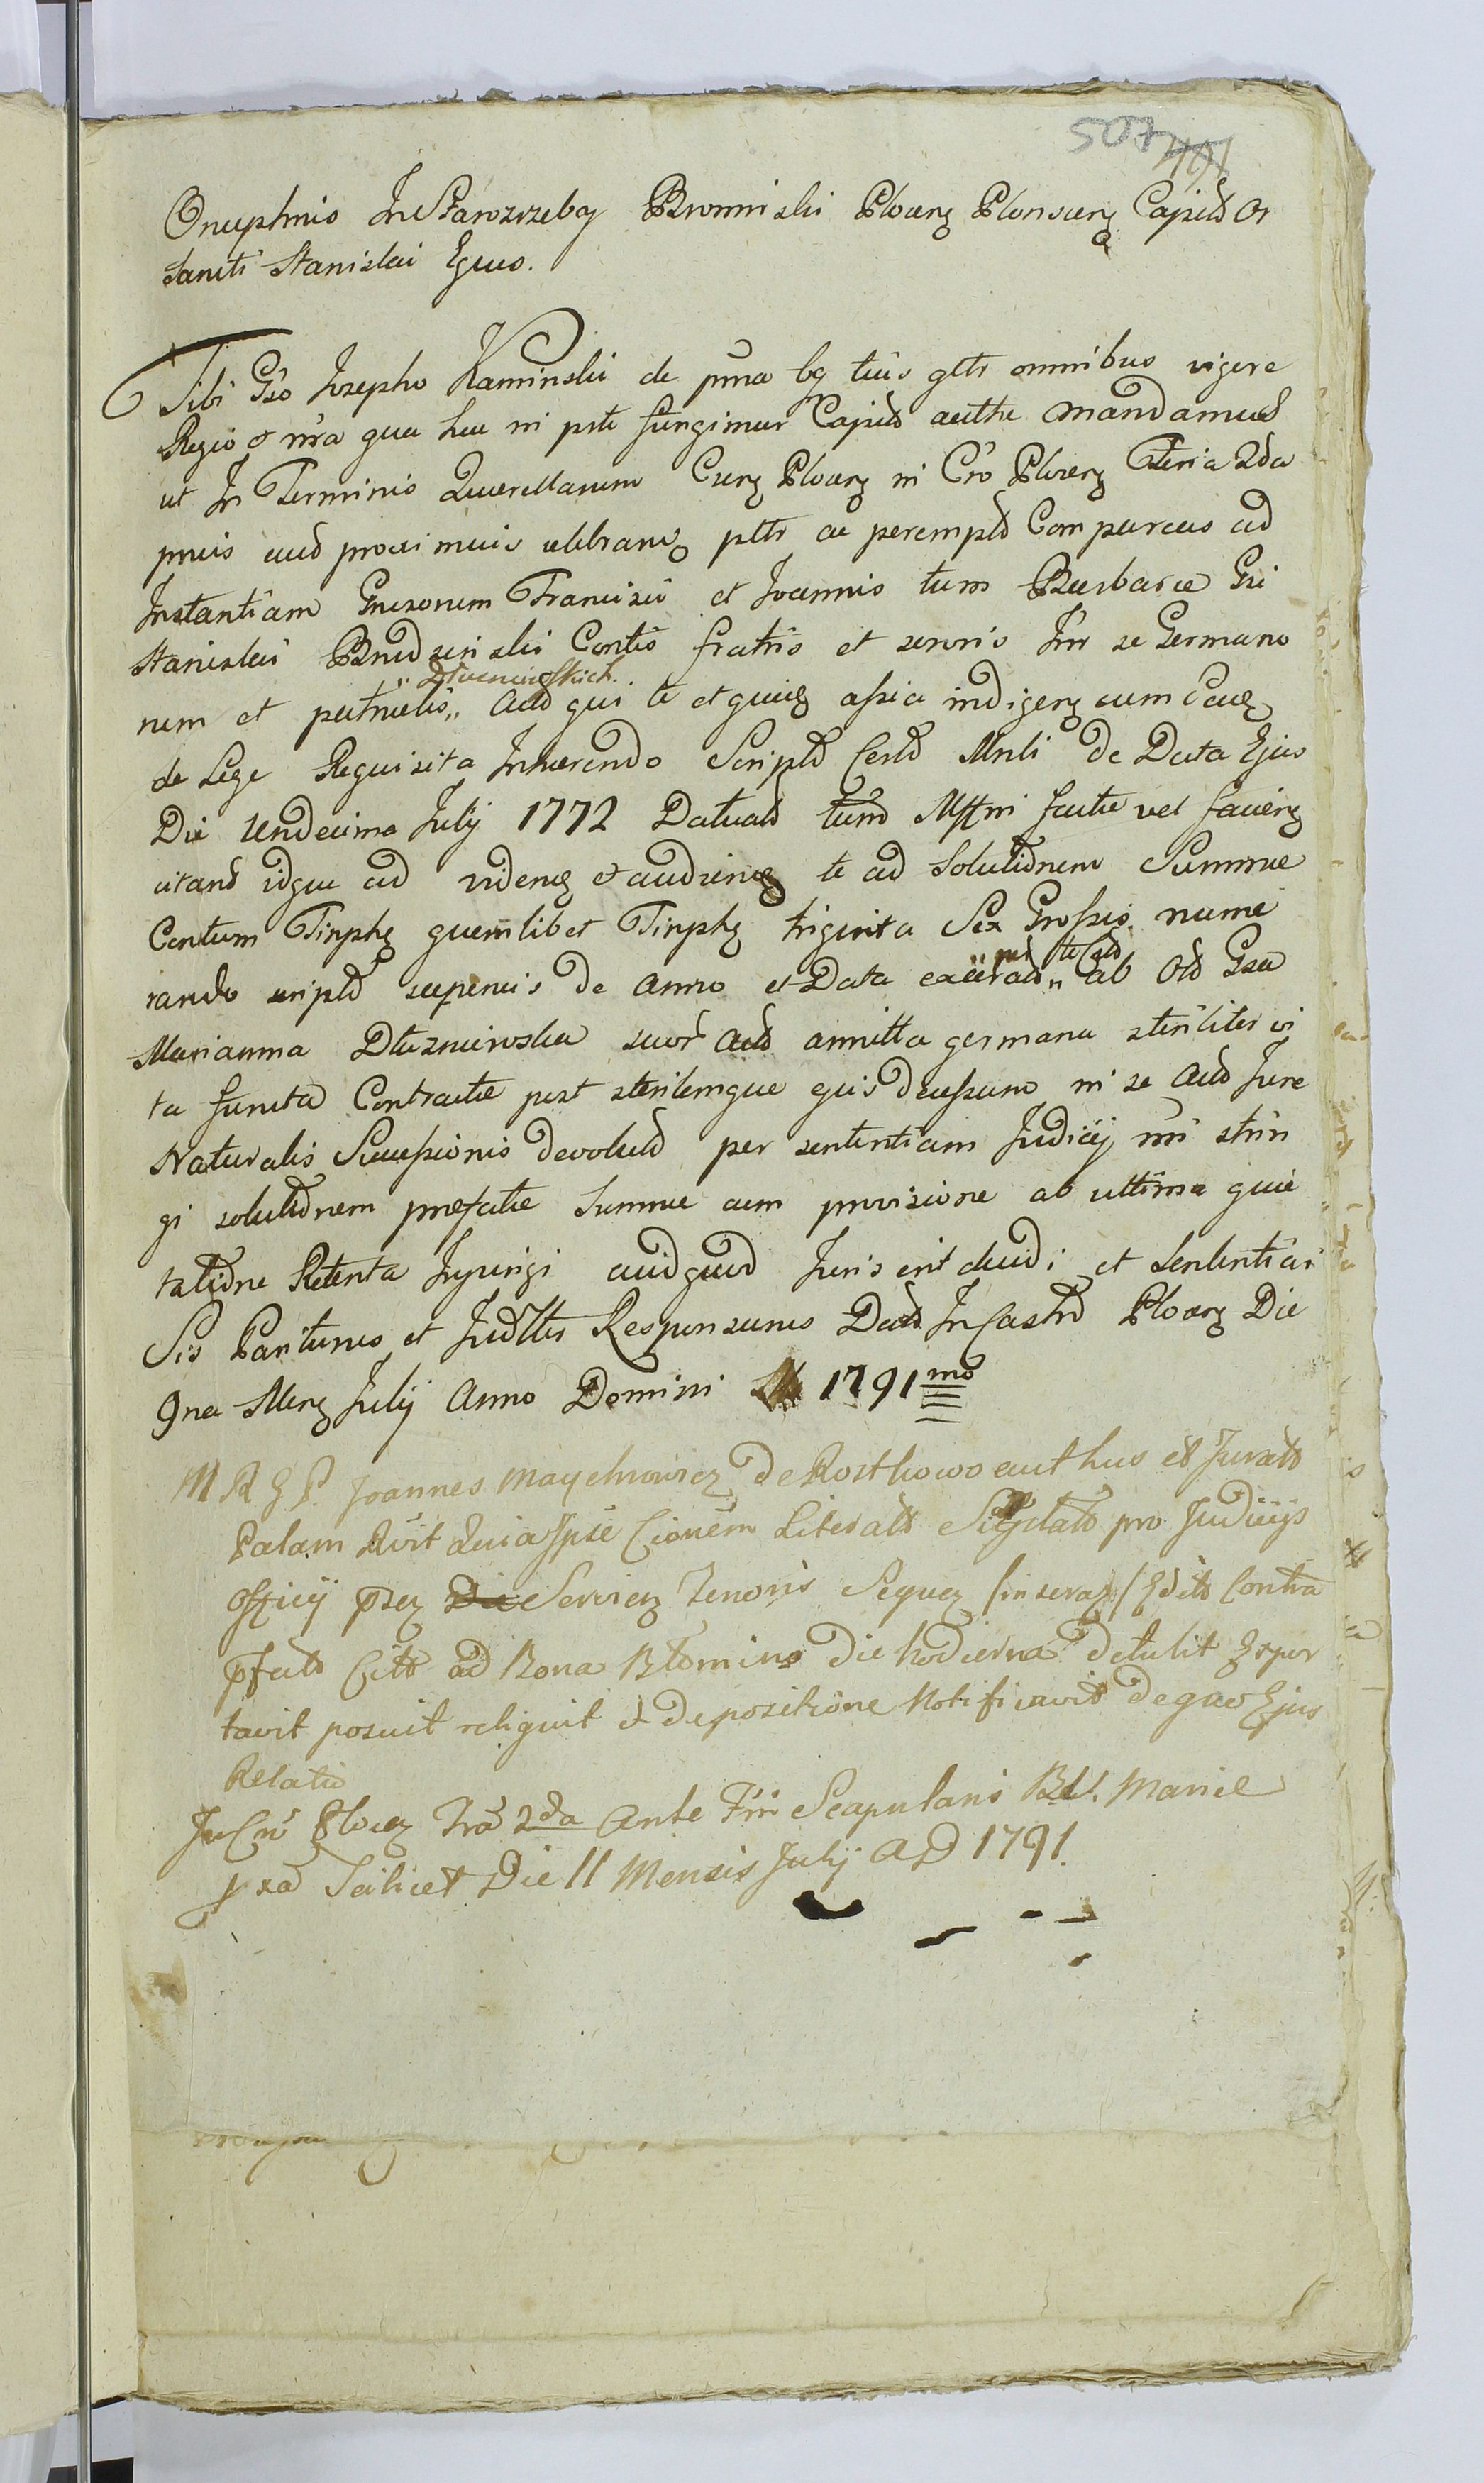 507 401
Onuphrio In Starozrzeby Bromirski Plocen Plonscen Capită Or
Sancti Stanislai Equo.
Tibi Gso Josepho Kaminski de psona bg tuis gltr omnibus vigere
Regiō et nra qua hac in prte fungimur Capită autthe mandamus
ut In Terminis Querellarum Curz Plocen in Cro Plocen Feria 2da
pnis aud proximuis celebrand pltr ac peremptd Compareas ad
Instantiam Gnesorum Francisci et Joannis tum Barbarae Gsi
Stanislai Brudzinski Contis fratris et sororis Intr se Germano
rum et patruelis „ Dłuzniewskich „ Actd qui te et quieq assia indigenz cum Caus
de Lege Requisita Inhaerendo Scriptd Certd Mnli de Data Ejus
Die Undecima Julij 1772 Datuatd tund Msstri factae vel faciene
citand idque ad videnq et audienq te ad Solutionem Summae
Centum Tinphg quemlibet Tinphg triginta Sex Grossis nume
rando scriptd superius de Anno et Data exaerato „ per te Catd „ ab Old Gsa
Marianna Dłuzniewska suor Actd amitta germana steriliter vi
ta functa Contractae post sterilemque ejus decessum in se Actd Jure
Naturalis Successionis devolutd per sententiam Judicij nri strin
gi solutionem praefatae Summae cum provisione ab ultima quie
tatione Retenta Injungi quidquid Juris erit decidi et Sententiai
Sis Pariturus et Juditter Responsurus Datd In Castrd Plocen Die
9na Menz Julij Anno Domini 1791mo
M R G P. Joannes Maychrowicz de Rostkowo authus et Juratts
Palam Rvit Quia Ipse Cionem Literatts Sigilatts pro Judicijs
Officij psez Die Servienz Tenoris Sequez /inseraz/ Editts Contra
pfatts Citts ad Bona Blomino Die hodierna detulit Expor
tavit posuit reliquit et depositione Notificavit de quo Ejus
Relatio
In Cro Plocen Fra 2da Ante Fm Scapularis B. V. Mariae
pxa Scilicet Die 11 Mensis Julij A D 1791.